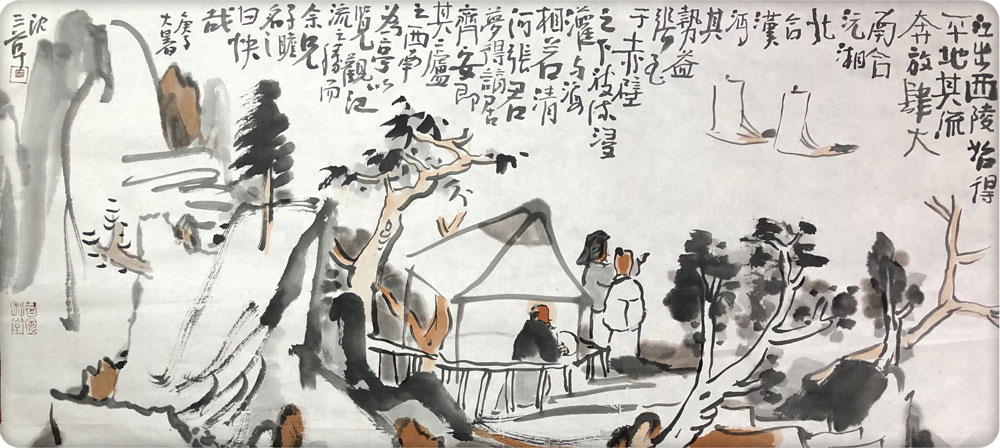 江出西陵始得
平地其流
奔放肆大
南合
沅湘
北
合
漢
沔
其
勢益
張至
于赤壁
之下波流浸
灌与海
相若清
河張君
夢得謫居
齊安即
其廬
之西南
為亭以
覽觀江
流之勝而
余兄
子瞻名之
曰快
哉
庚子
大暑
沈
三草